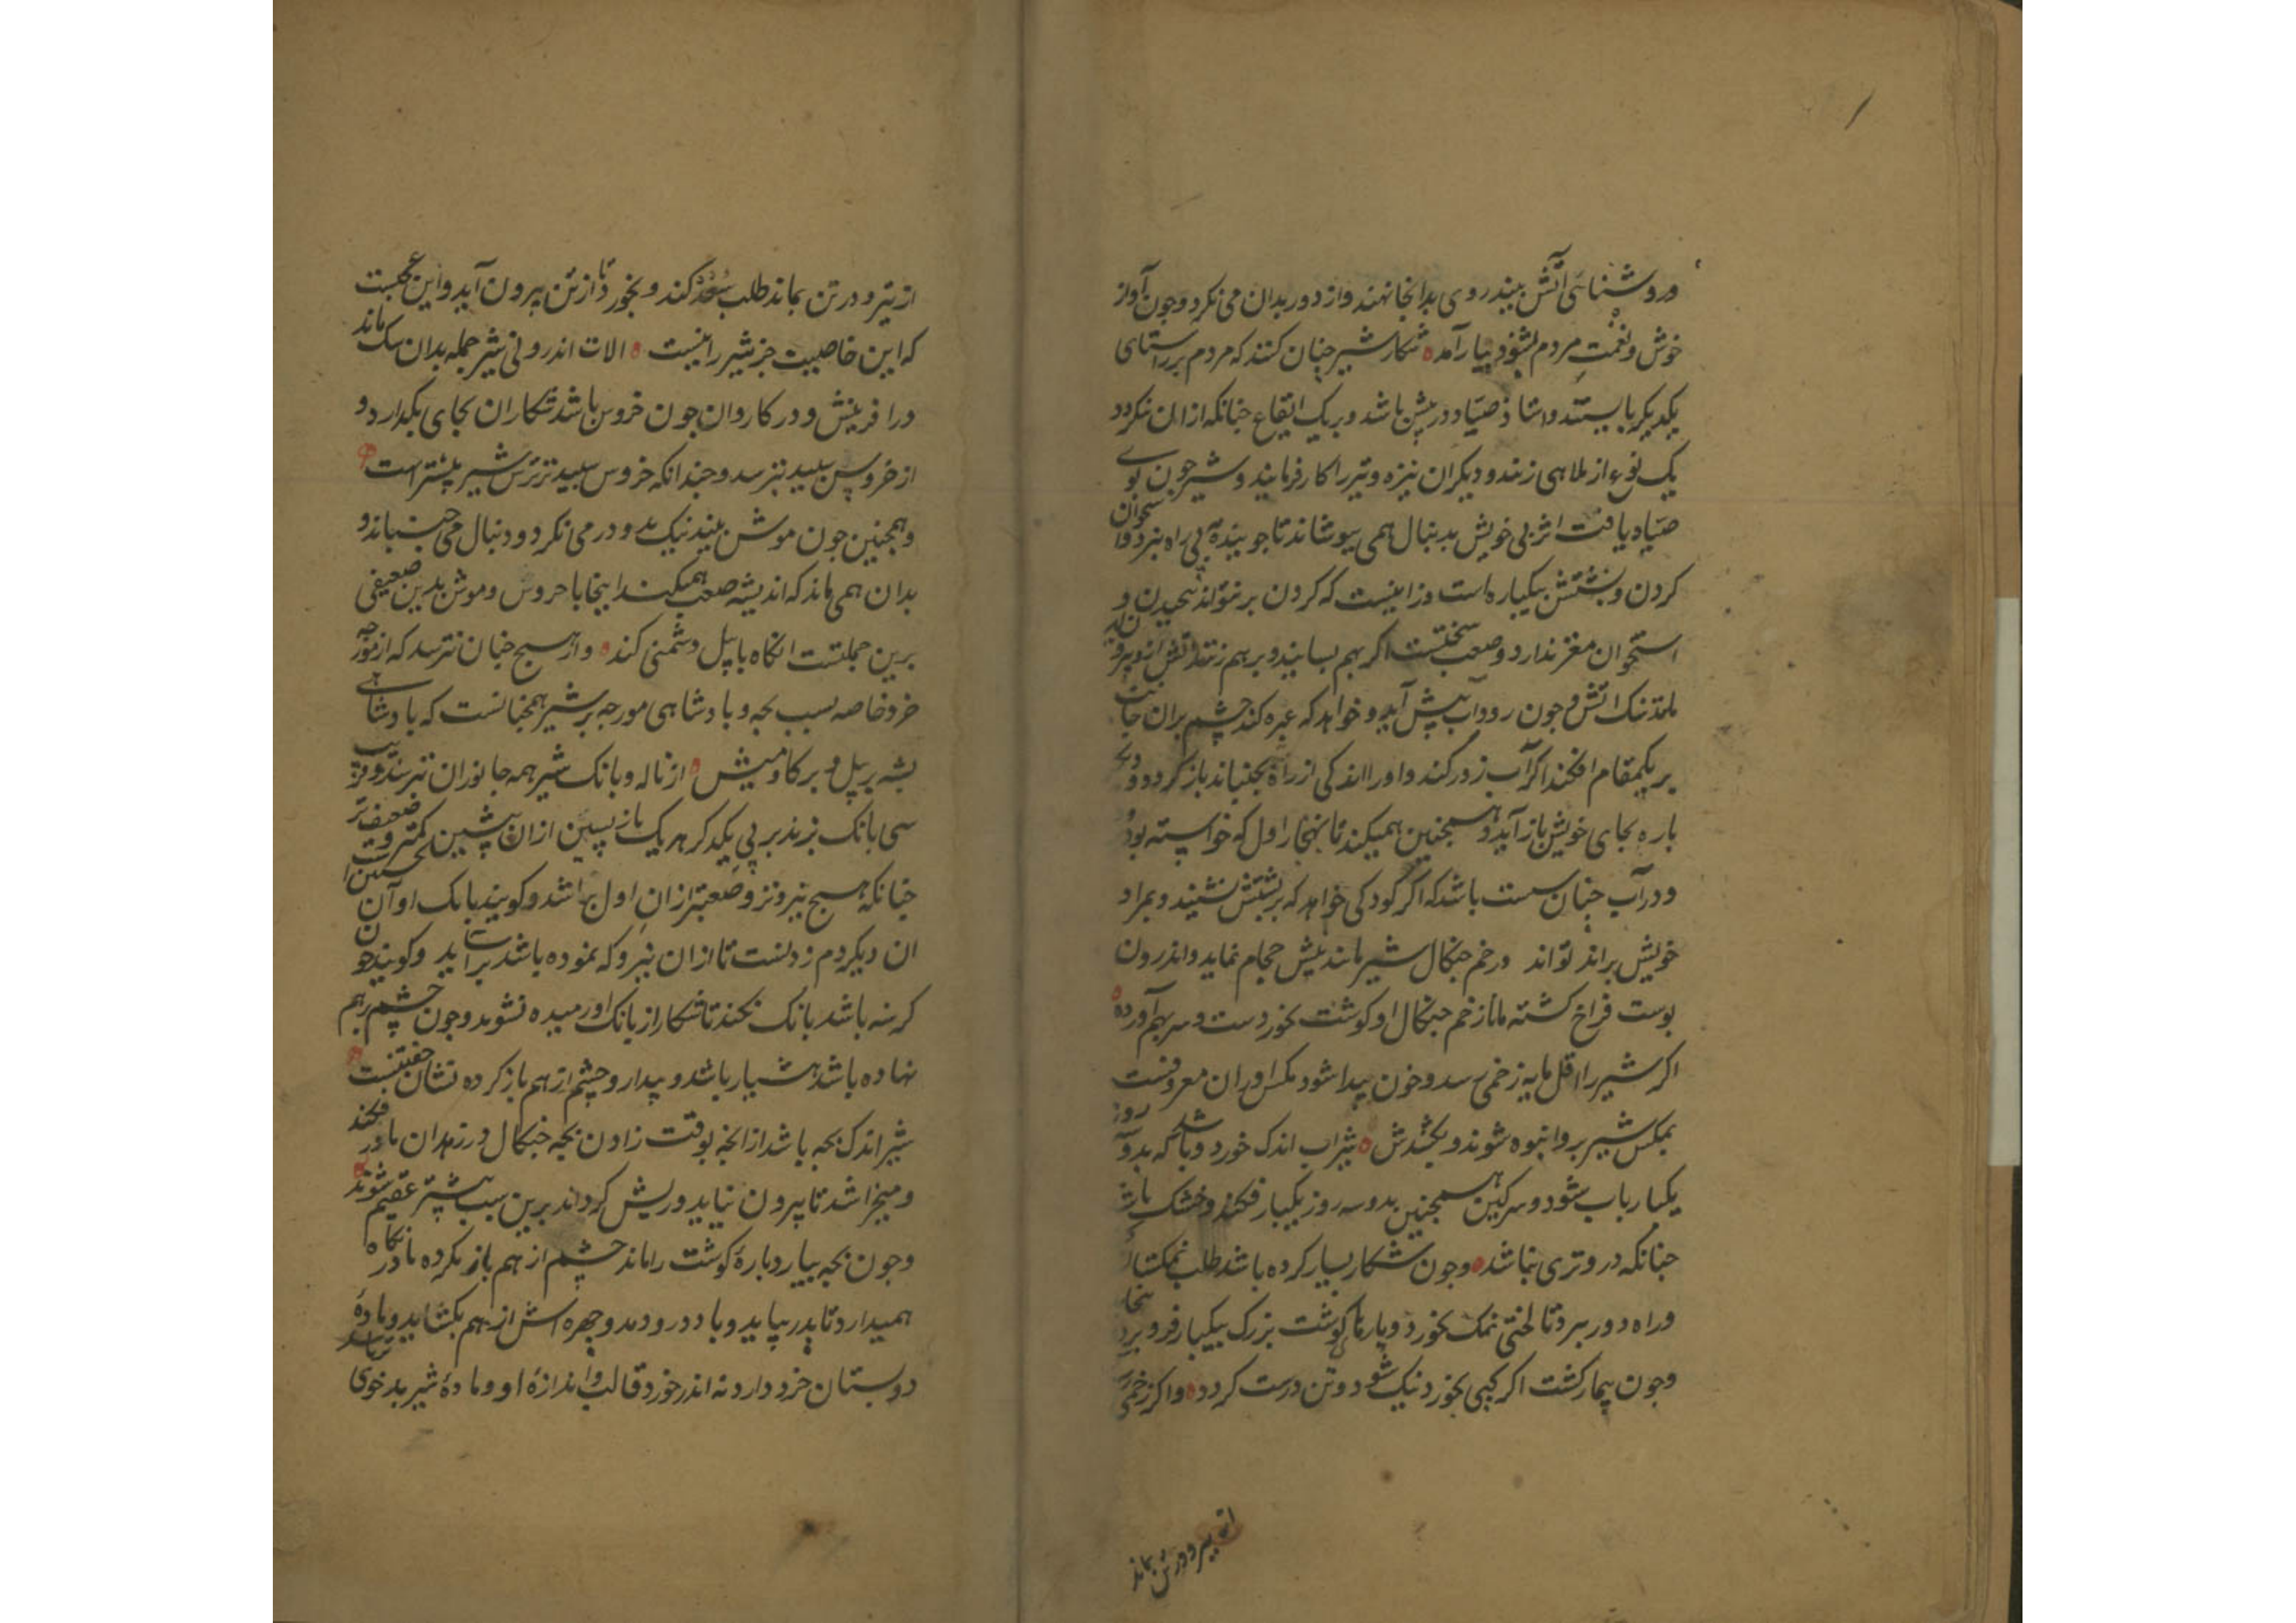 وروشنائی آتش بیند روی بدانجا نهند و از دور بدان می نکرد وجون آواز
خوش و نغمت مردم بشنود بیارآمد شکار شیر جنان کنند که مردم بر راستای
یکدیکر بایستند و استاذ صیاد در پیش باشد و بریک ایقاع جنانکه از الن نکردد
یک نوع از ملاهی زنند و دیکران نیزه و تیر را کار فرمایند و شیر جون بوی
صیاد یافت اثر پی خویش بدنبال همی پوشاند تا جوینده پی راه نبرد و استخوان
کردن و پشتش یکپاره است و زاینست که کردن بر نتواند پیجیدن و
استخوان مغز ندارد و صعب سختست اکر بهم بسایند و برهم زنند آتش ازو بیرون آید
مانند سنک آتش وجون رود آب پیش آید و خواهد که عبره کند جشم بران جانب
بریکمقام افکند اکر آب زور کند و اورا اندکی از راه بجنباند باز کردد و دیکر
باره بجای خویش باز آید و همجنین همیکند تا بهنجار اول که خواسته بود
ودر آب جنان سست باشد که اکر کودکی خواهد که بر پشتش نشیند و بمراد
خویش براند تواند و زخم جنکال شیر مانند نیش حجام نماید و اندرون
پوست فراخ کشته ماناز خم جنکال او کوشت بخوردست و سر بهم آورده
اکر شیر را اقل مایه زخمی رسد و خون پیدا شود مکس اوران معروفست
بمکس شیر برو انبوه شوند و بکشندش شیر آب اندک خورد و باشد که بدو روز
یکبار باب شود و سرکین همجنین بدو سه روز یکبار فکند و خشک باشد
جنانکه درو تری نباشد وجون شکار بسیار کرده باشد طلب نمکستان
وراه دور ببرد تا لختی نمک بخورد و پارهای کوشت بزرک بیکبار فرو برد
وجون بیمار کشت اکر کپی بخورد نیک شود و تن درست کردد و اکر زخمی
از تیر و در تن بماند
از تیر و در تن بماند طلب سعد کند و بخورد تا از تن بیرون آید و این عجبست
که این خاصیت جز شیر را نیست الات اندرونی شیر جمله بدان سک ماند
در افرینش و در کاروان جون خروس باشد شکار ان بجای بکذارد و
از خروس سپید بترسد و جندانکه خروس سپید تر ترس شیر بیشتر است
وهمجنین جون موش بیند نیک بدو در می نکرد و دنبال می جنباند و
بدان همی ماند که اندیشه صعب همیکند اینجا با خروس و موش بدین ضعیفی
برین جملتست انکاه با پیل دشمنی کند و از هیج جنان نترسد که از مورجه
خرد خاصه بسبب بجه و پادشاهی مورجه بر شیر همجنانست که پادشاهی
پشه بر پیل و بر کاومیش از ناله و بانک شیر همه جانوران بترسند و قریب
سی بانک بزند بر پی یکدکر هر یک باز پسین از ان پیشین کمتر و ضعیف تر
جنانکه هیج نیروتر و صعبتر از ان اول نباشد و کویند بانک او آن نخستین است
ان دیکر دم زدنست تا از ان نیرو که نموده باشد برآید و کویند جون
کرسنه باشد بانک نکند تا شکار از بانک او رمیده نشوند وجون جشم برهم
نهاده باشد هشیار باشد و بیدار و جشم از هم باز کرده نشان خفتنست
شیر اندک بجه باشد از انجه بوقت زادن بجه جنکال در زهدان مادر فکند
و میخراشد تا بیرون نیاید و ریش کرداند برین سبب بیشتر عقیم شوند
وجون بجه بیارد پارۀ کوشت را ماند جشم از هم باز نکرده مادر نکاه
همیدارد تا پدر بیاید و باد درو دمد و جهره اش از هم بکشاید و مادۀ
دو پستان خرد دارد نه اندر خورد قالب و اندازۀ او و مادۀ شیر بدخوی